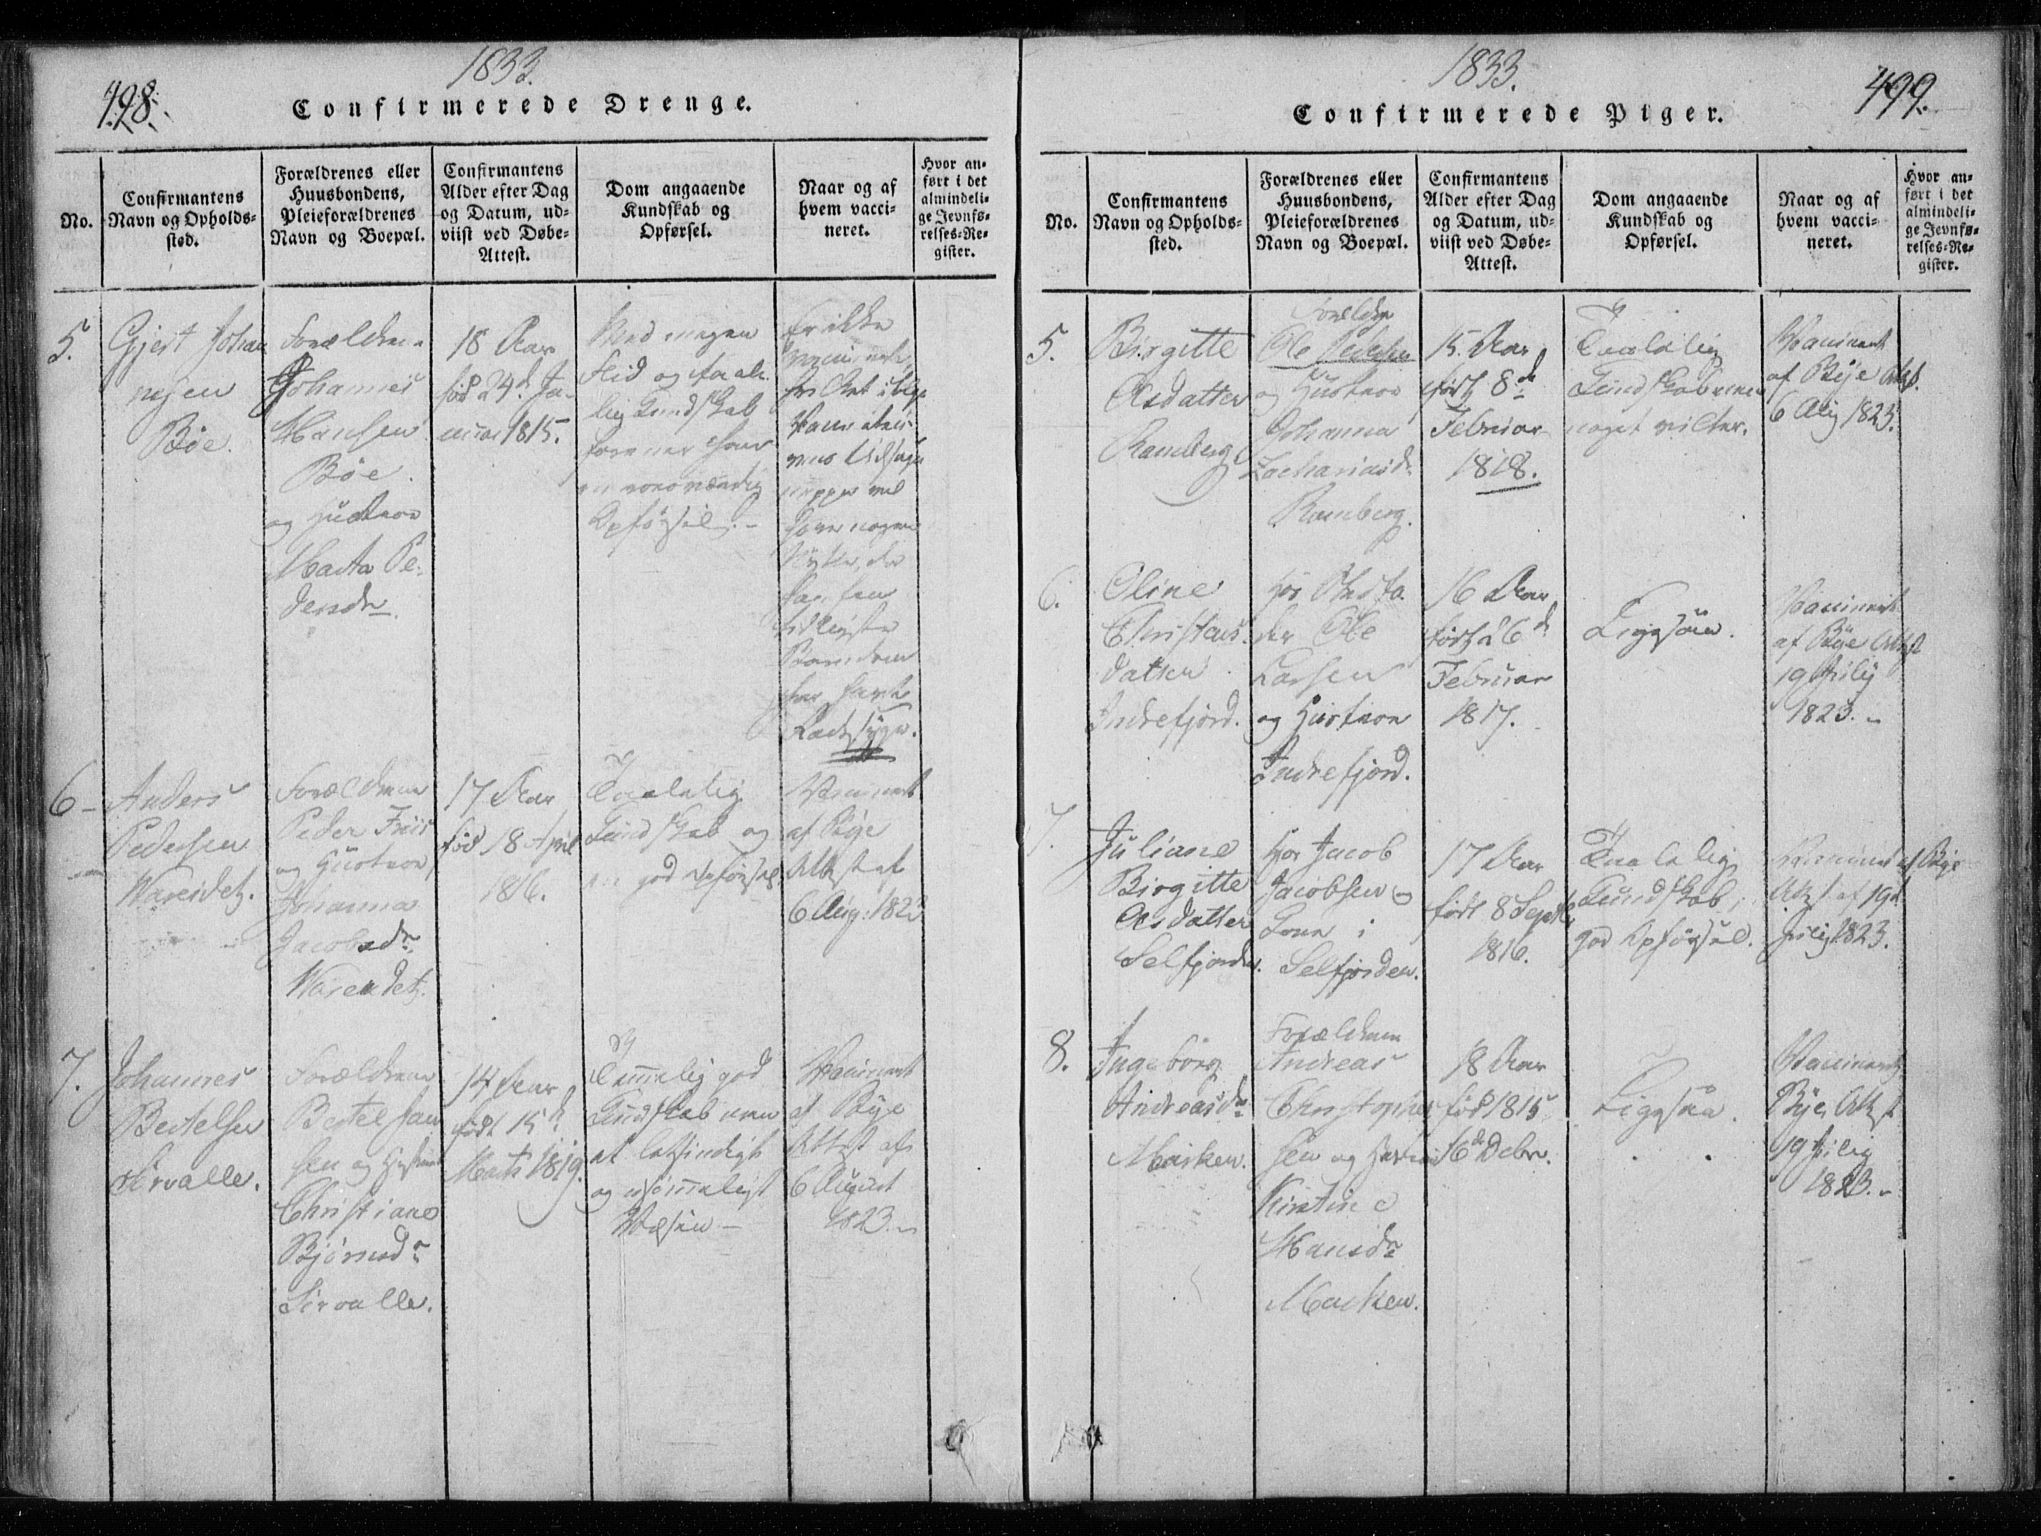 498.
1833.
Confirmerede Drenge.
No.
Confirmantens
Navn og Opholds-
sted.
Forældrenes eller
Huusbondens,
Pleieforældrenes
Navn og Boepæl.
Confirmantens
Alder efter Dag
og Datum, ud-
viist ved Døbe-
Attest.
Dom angaaende
Kundskab og
Opførsel.
Naar og af
hvem vacci-
neret.
Hvor an-
ført i det
almindeli-
ge Jevnfø-
relses-Re-
gister.
5.
Gjert Johan
nesen
Bøe.
Forældrene
Johannes
Hansen
Bøe.
og Hustroe
Marta Pe-
dersdr
18 Aar
fød 24d Ja-
nuar 1815.
Med megen
Flid og taale-
lig Kundskab
forener han
en
Opførsel.-
Er ikke
6-
Anders
Pedersen
Wareidet.
Forældrene
Peder Friis
og Hustroe
Johanna
Jacobsdr
Wareidet.
17 Aar
fød 18 April
1816.
Taalelig
Kundskab og
en god Opførsel
Vaccineret
af Bye
Attest af
6 Aug: 1823
7.
Johannes
Bertelsen
Sirvalle.
Forældrene
Bertel Jan
sen og Hustroe
Christiane
Bjørnsdr
Sirvalle.
14 Aar
født 15d
Marts 1819.
Temmelig god
Kundskab men
et letsindigt
og usømmeligt
Væsen-
Vaccineret
af Bye
Attest af
6 August
1823.-
1833.
499.
Confirmerede Piger.
No.
Confirmantens
Navn og Opholds-
sted.
Forældrenes eller
Huusbondens,
Pleieforældrenes
Navn og Boepæl.
Confirmantens
Alder efter Dag
og Datum, ud-
viist ved Døbe-
Attest.
Dom angaaende
Kundskab og
Opførsel.
Naar og af
hvem vacci-
neret.
Hvor an-
ført i det
almindeli-
ge Jevnfø-
relses-Re-
gister.
5.
Birgitte
Olsdatter
Ramberg
Forældre
Ole Pedersen
og Hustroe
Johanna
Zachariasdr
Ramberg.
15. Aar
født 8de
Februar
1818.
Taalelig
Kundskab men
noget vilter.
Vaccineret
af Bye Attst.
6 Aug 1823.
6.
Oline
Christens
datter
Indrefjord.
hos Plejefa
der Ole
Larsen
og Hustroe
Indrefjord.
16 Aar
født 26d
Februar
1817.
Ligesaa.
Vaccineret
af Bye Attst
19 July
1823.-
7.
Juliane
Birgitte
Olsdatter
Selfjorden.
Hos Jacob
Jacobsen og
Kone i
Selfjorden.
17 Aar
født 8 Septb
1816.
Taalelig
Kundskab,
god Opførsel.
Vaccineret af Bye
Attst af 19d
July 1823.
8.
Ingeborg
Andreasdr
Marken.
Forældrene
Andreas
Christopher
sen og Hustroe
Kirstine
Hansdr
Marken.
18 Aar
fød 1815
16de Debr.
Ligesaa.
Vaccineret
Bye Attst
19 July
1823.-